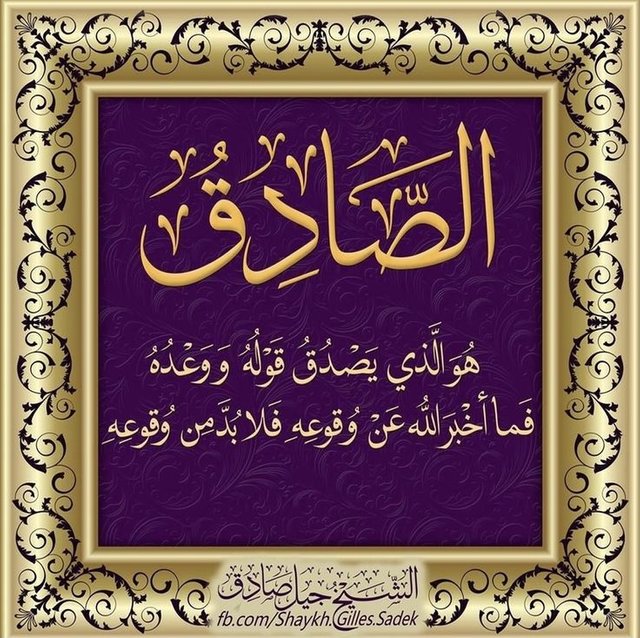 الصَّادِقُ
هُوَ الَّذي يَصْدُقُ قَوْلُهُ وَوَعْدُهُ
فَما أخْبَرَ اللهُ عَنْ وُقوعِهِ فَلا بُدَّ مِن وُقوعِهِ
الشَّيْخ جيل صادِق
fb.com/Shaykh.Gilles.Sadek